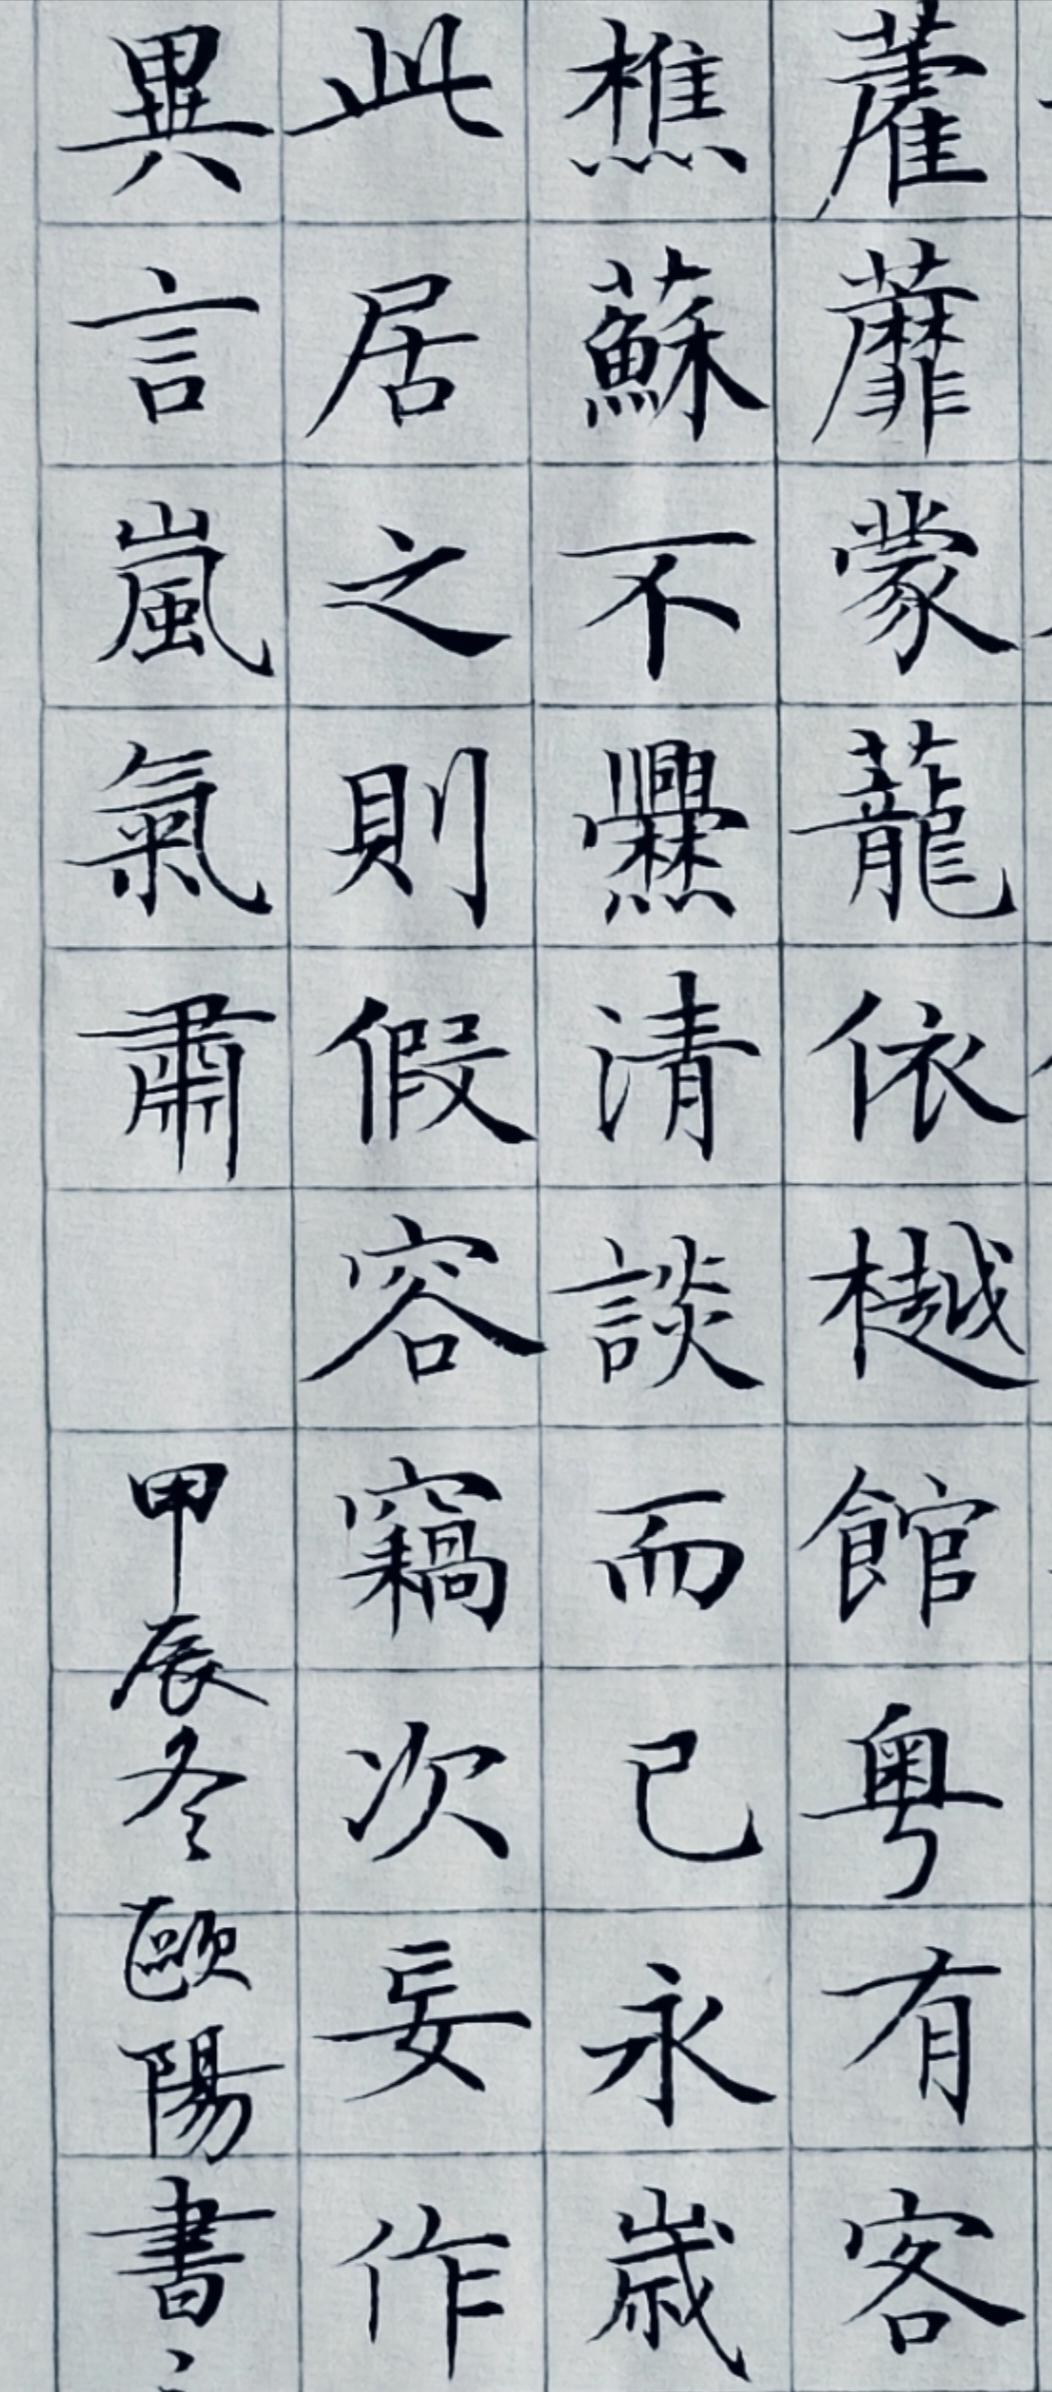 蘼蒙蘢依樾館粤有客
樵蘇不爨清談而已永歲
此居之則假容竊次妄作
異言嵐氣肅
甲辰冬歐陽書